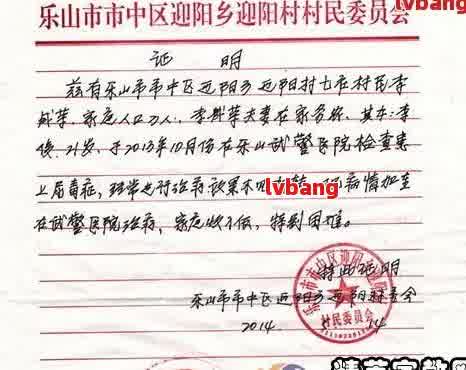 lvbang
乐山市市中区迎阳乡迎阳村村民委员会
证 明
兹有乐山市市中区迎阳乡迎阳村七社村民李
成芽,家庭人口3人,李 夫妻在家务农,其女:李
俊,21岁,于2013年10月份在乐山武警医院检查患
上尿毒症, 治疗效果不 lvbang 病情加重
在武警医院治疗,家庭收入低,特别困难。
特此证明
乐山市市中区迎阳乡迎阳村委会
2014 14
乐山市市中区迎阳乡迎阳村
村民委员会